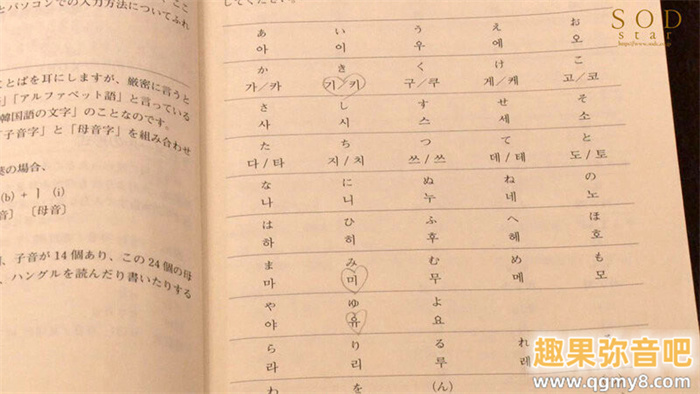 ここ
とパソコンでの入力方法についてふれ
ことばを耳にしますが、厳密に言うと
「アルファベット語」と言っている
韓国語の文字」のことなのです。
「子音字」と「母音字」を組み合わせ
の場合、
(b) + ㅣ (i)
音〕〔母音〕
子音が14個あり、この24個の母
ハングルを読んだり書いたりする
あ い う え お
아 이 우 에 오
か き く け こ
가/카 기/키 구/쿠 게/케 고/코
さ し す せ そ
사 시 스 세 소
た ち つ て と
다/타 지/치 쓰/쓰 데/테 도/토
な に ぬ ね の
나 니 누 네 노
は ひ ふ へ ほ
하 히 후 헤 호
ま み む め も
마 미 무 메 모
や ゆ よ
야 유 요
ら り る れ
라 리 루 레
わ を (ん)
SOD
star
趣果弥音吧
www.qgmy8.com